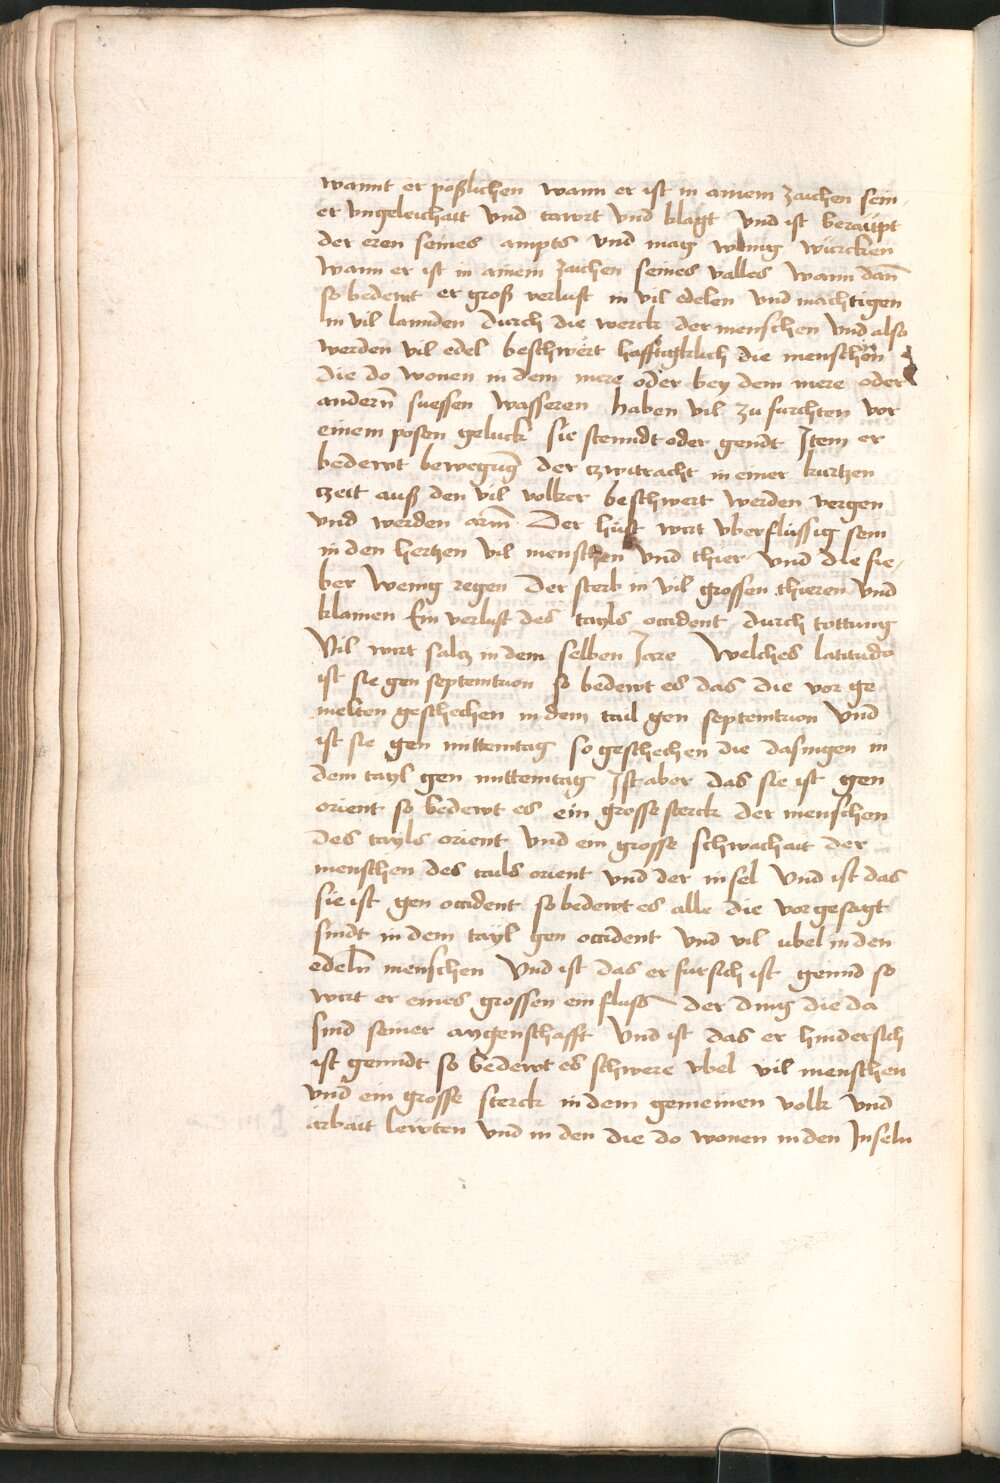 wannt er poßlichen wann er ist in ainem zaichen sein,
er vngeleichait vnd trawrt vnd klagt vnd ist beraupt
der eren seines ampts vnd mag wenig würcken
Wann er ist in ainem zaichen seines valles wann dan̄
so bedewt er groß verlust in vil edelen vnd mächtigen
in vil lannden durch die werck der menschen vnd also
werden vil edel beschwert hafftigklich die menschen
die do wonen in dem mere oder bey dem mere oder
andern̄ suessen wasseren haben vil zu furchten vor
einem posen geluck sie stenndt oder gendt Item er
bedewt bewegūg der zwitracht in einer kurtzen
czeit auß den vil volker beschwert werden vergen
vnd werden arm̄ Der hust wirt vberflussig sein
in den hertzen vil menschen vnd thier vnd die fie,
ber wenig regen Der sterb in vil grossen thieren vnd
klainen Ein verlust des tayls occident durch tottung
Vil wirt saltz in dem selben Jare Welches latitudo
ist sie gen septemtrion so bedewt es das die vor ge
melten geschechen in dem tail gen septemtrion vnd
ist sie gen mittemtag so geschechen die dasingen in
dem tayl gen mittemtag Ist aber das sie ist gen
orient so bedewt es ein grosse sterck der menschen
des tayls orient vnd ein grosse schwachait der
menschen des tails orient vnd der insel Vnd ist das
sie ist gen occident so bedewt es alle die vorgesagt
sindt in dem tayl gen occident vnd vil ubel in den
edeln̄ menschen Vnd ist das er fursich ist geennd so
wirt er eines grossen einfluss der ding die da
sind seiner aygenschafft Vnd ist das er hindersich
ist genndt so bedewt es schwere vbel vil menschen
vnd ein grosse sterck in dem gemeinen volk vnd
arbait lewten vnd in den die do wonen in den Inseln